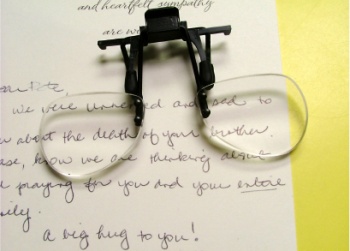 and heartfelt sympathy
are wi
Pete,
We were unnerved and sad to
about the death of your brother.
ase, know we are thinking about
praying for you and your entire
ily.
A big hug to you!